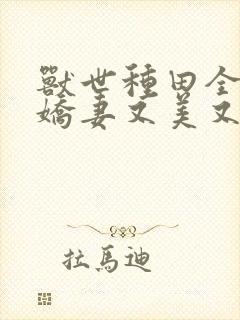 獸世種田全
嬌妻又美又
拉馬迪